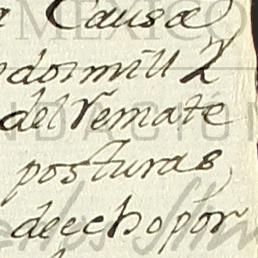 Causa
dosmill
del Remate
posturas,
deechopor